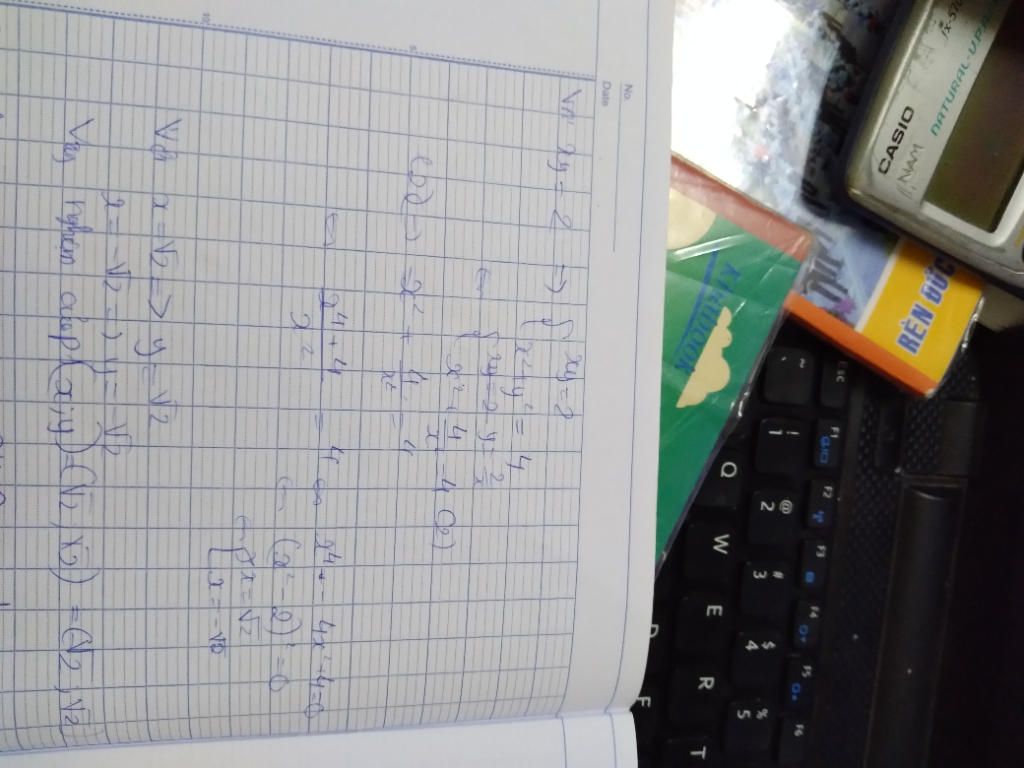 No.
Date
Với xy = 2 => { xy = 2
x² + y² = 4
<=> { xy = 2 y = 2/x
x² + 4/x² = 4 (2)
(2) <=> x² + 4/x² = 4
<=> x⁴ + 4 / x² = 4 <=> x⁴ - 4x² + 4 = 0
<=> (x² - 2)² = 0
<=> [ x = √2
x = -√2
Với x = √2 => y = √2
x = -√2 => y = -√2
Vậy nghiệm (x;y) = (√2; √2) = (√2, √2)
5
10
CASIO
fx-570
NATURAL-V.P.A.M
NAM
RÈN ĐỨC
KYNIDOOK
ESC
F1
F2
F3
F4
F5
F6
~ `
! 1
@ 2
# 3
$ 4
% 5
Q
W
E
R
T
D
F